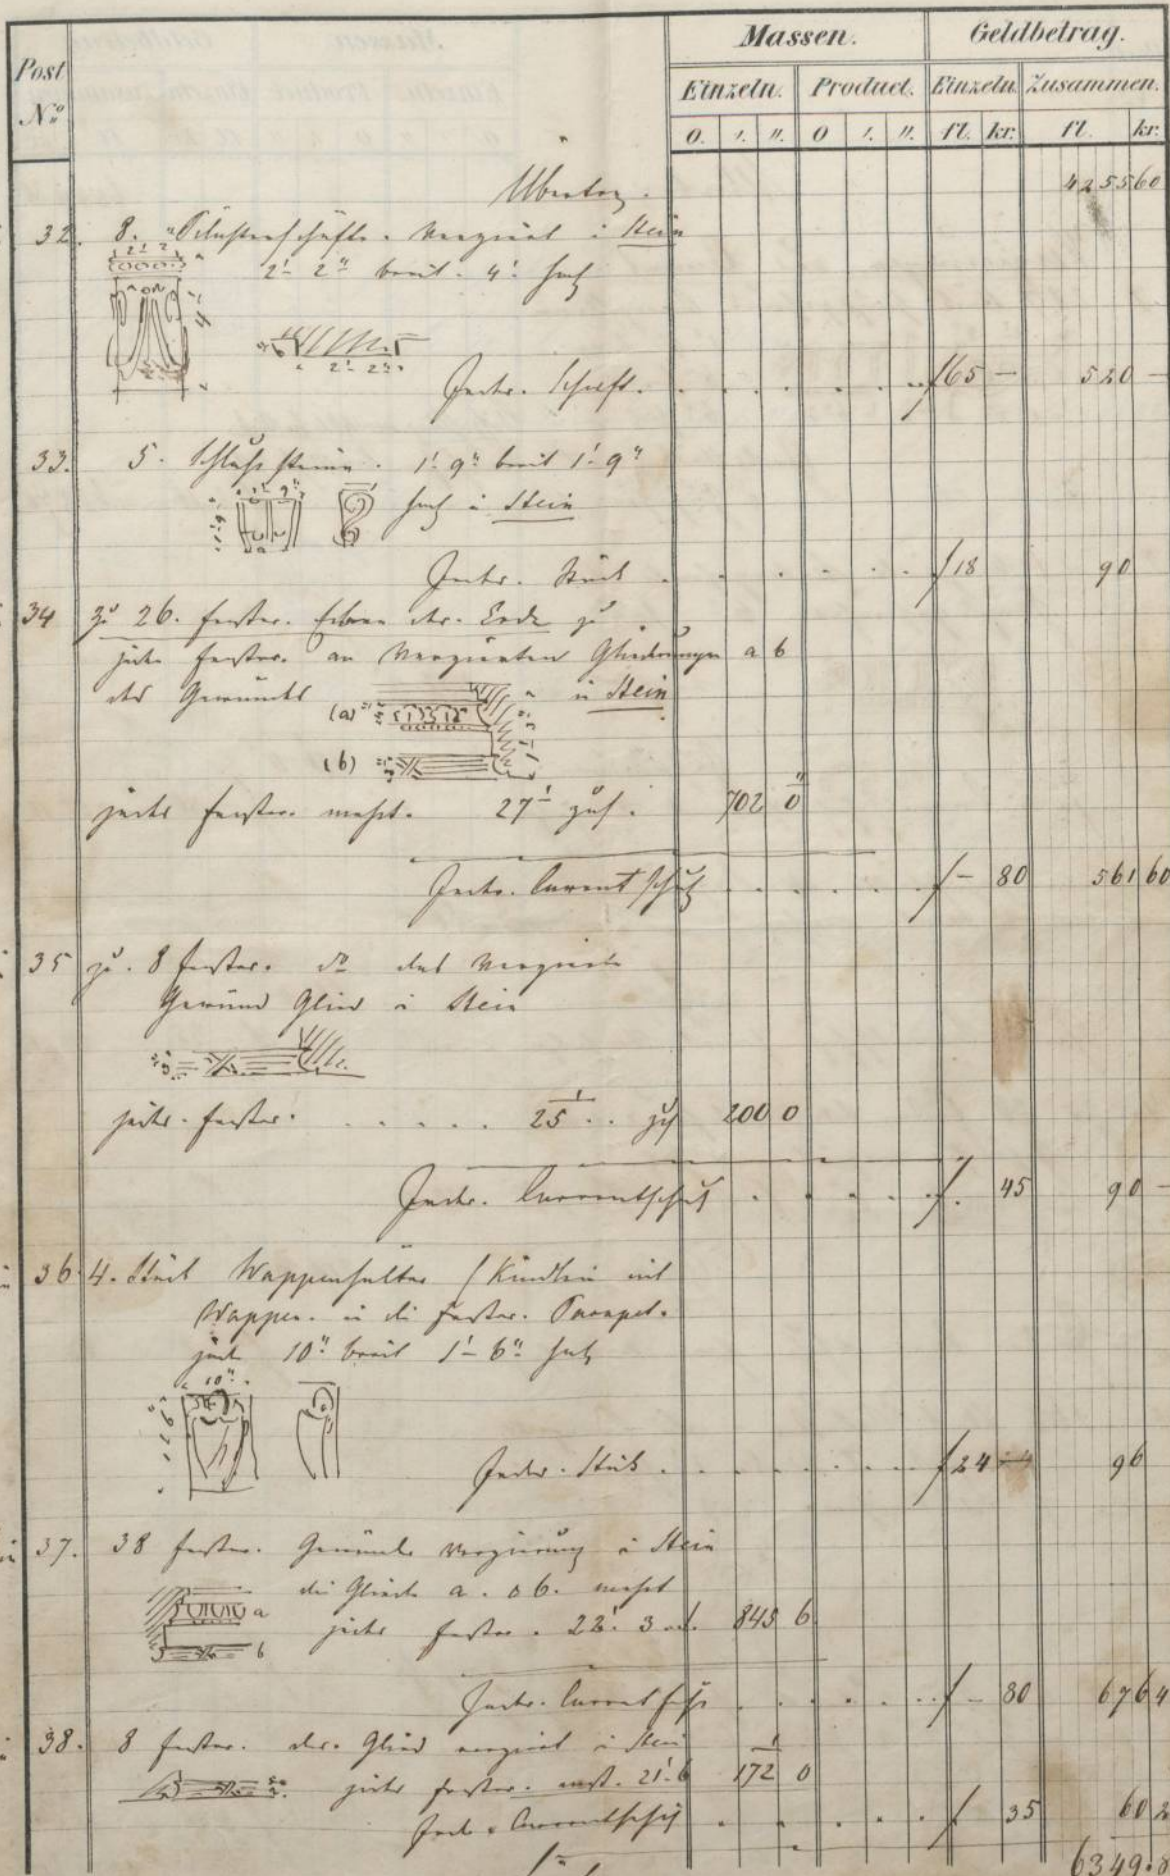 Post No
Massen. Geldbetrag.
Einzeln. Product. Einzeln Zusammen.
0. ׳. ״. 0 ׳. ״. fl. kr. fl. kr.
Übertrag. 4255 60
32. 8. Pilasterschäfte. verziert in Stein
2' 2"
2' 2" breit. 4' hoch
4'
2' 2"
Jeder. Schaft. f 65 — 520 —
33. 5. Schlusssteine. 1' 9" breit 1' 9"
1' 9"
hoch in Stein
Jedes. Stück f 18 90
34 zu 26. Fenster. Ebener der. Erde zu
jedes Fenster. an verzierten Gliederungen a b
des Gewändes in Stein
(a)
(b)
jedes Fenster. messt. 27' zus. 702 0"
Jeder. Current Schuh f — 80 561 60
35 zu. 8 Fenster. do das verzierte
Gewänd Glied in Stein
jedes. Fenster. 25' zus 200 0
Jeder. Currentschuh f. 45 90 —
36. 4. Stück Wappenhalter / Kindlein mit
Wappen. in die Fenster.
jede 10" breit 1' 6" hoch
10"
Jedes. Stück f 24 96
37. 38 Fenster. Gewände Verzierung in Stein
die Glieder a. b. messt
a
jedes Fenster. 22' 3 845 6
b
Jeder. Current Schuh f — 80 676 4
38. 8 Fenster. das. Glied verziert in Stein
jedes Fenster. messt. 21' 6 172 0
Jeder Currentschuh f 35 60 2
6349.8